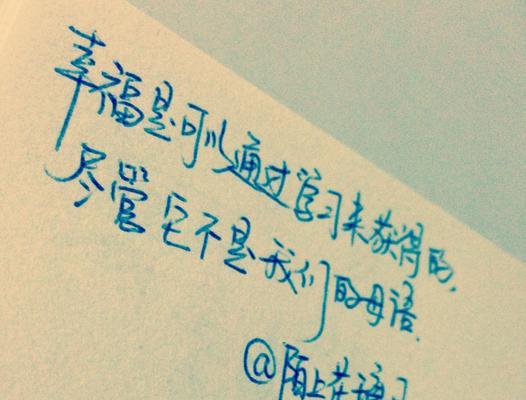 幸福是可以通过学习来获得的,
尽管它不是我们的母语.
@陌上花